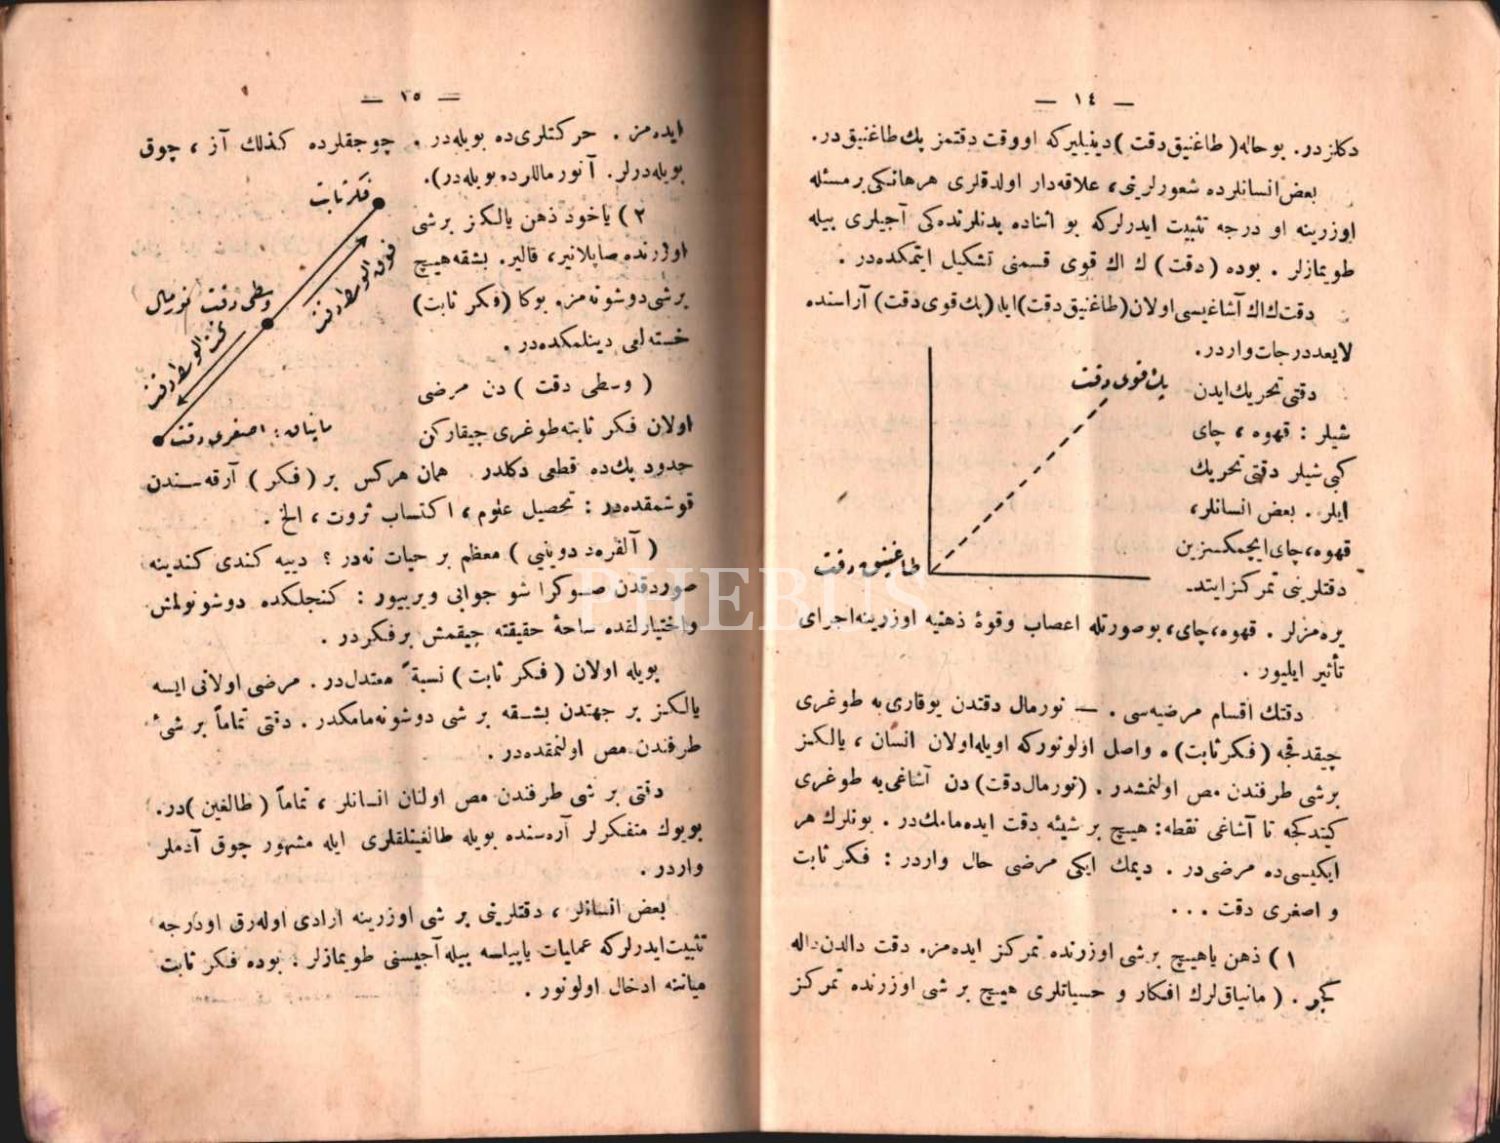 — ١٤ —
دكلزدر. بو حاله (طاغنيق دقت) دينيليركه او وقت دقتمز پك طاغنيق در.
بعض انسانلرده شعورلرينى، علاقه‌دار اولدقلرى هر هانكى بر مسئله
اوزرينه او درجه تثبيت ايدرلركه بو اثناده بدنلرنده‌كى آجيلرى بيله
طويمازلر . بوده (دقت) ك اك قوى قسمنى تشكيل ايتمكده‌در .
دقتك اك آشاغيسى اولان (طاغنيق دقت) ايله (پك قوى دقت) آراسنده
لايعد درجات واردر.
دقتى تحريك ايدن
شيلر : قهوه ، چاى
كبى شيلر دقتى تحريك
ايلر . بعض انسانلر،
قهوه، چاى ايچمكسزين
دقتلرينى تمركز ايتد‌‌‌-
پك قوى دقت
طاغنيق دقت
يره‌مزلر . قهوه، چاى، بوصورتله اعصاب وقوۀ ذهنيه اوزرينه اجراى
تأثير ايليور .
دقتك اقسام مرضيه‌سى . — نورمال دقتدن يوقارى‌يه طوغرى
چيقدقجه (فكر ثابت) ه واصل اولونوركه اويله اولان انسان ، يالكز
برشى طرفندن مص اولنمشدر . (نورمال دقت) دن آشاغى‌يه طوغرى
كيتدكجه تا آشاغى نقطه: هيچ بر شيئه دقت ايده‌مامك‌در . بونلرك هر
ايكيسى‌ده مرضى‌در . ديمك ايكى مرضى حال واردر : فكر ثابت
و اصغرى دقت . . .
١) ذهن ياهيچ برشى اوزرنده تمركز ايده‌مز. دقت دالدن داله
كچر . ( مانياق‌لرك افكار و حسياتلرى هيچ بر شى اوزرنده تمركز
— ١٥ —
ايده‌مز . حركتلرى‌ده بويله‌در . چوجقلرده كذلك آز ، چوق
بويله‌درلر. آنورماللرده بويله‌در).
٢) ياخود ذهن يالكز برشى
اوزرنده صاپلانير، قالير. بشقه هيچ
برشى دوشونه‌مز. بوكا (فكر ثابت)
خسته‌لغى دينلمكده‌در .
( وسطى دقت ) دن مرضى
اولان فكر ثابته طوغرى چيقاركن
فكر ثابت
فوق الوسط دقت
وسطى دقت نورمال
تحت الوسط دقت
مانياق : اصغرى دقت
حدود پك‌ده قطعى دكلدر. همان هركس بر (فكر) آرقه‌سندن
قوشمقده‌در : تحصيل علوم ، اكتساب ثروت ، الخ .
( آلفره‌د دوينيى ) معظم بر حيات نه‌در ؟ دييه كندى كندينه
صوردقدن صوكرا شو جوابى ويرييور : كنجلكده دوشونولمش
واختيارلقده ساحۀ حقيقته چيقمش برفكردر .
بويله اولان ( فكر ثابت ) نسبةً معتدل‌در . مرضى اولانى ايسه
يالكز بر جهتدن بشقه بر شى دوشونه‌مامكدر . دقتى تماماً بر شىء
طرفندن مص اولنمقده‌در .
دقتى بر شى طرفندن مص اولنان انسانلر ، تماماً ( طالغين ) در.
بويوك متفكرلر آره‌سنده بويله طالغينلقلرى ايله مشهور چوق آدملر
واردر .
بعض انسانلر ، دقتلرينى بر شى اوزرينه ارادى اوله‌رق اودرجه
تثبيت ايدرلركه عمليات ياپيلسه بيله آجيسنى طويمازلر . بوده فكر ثابت
ميانه ادخال اولونور .
PHEBUS